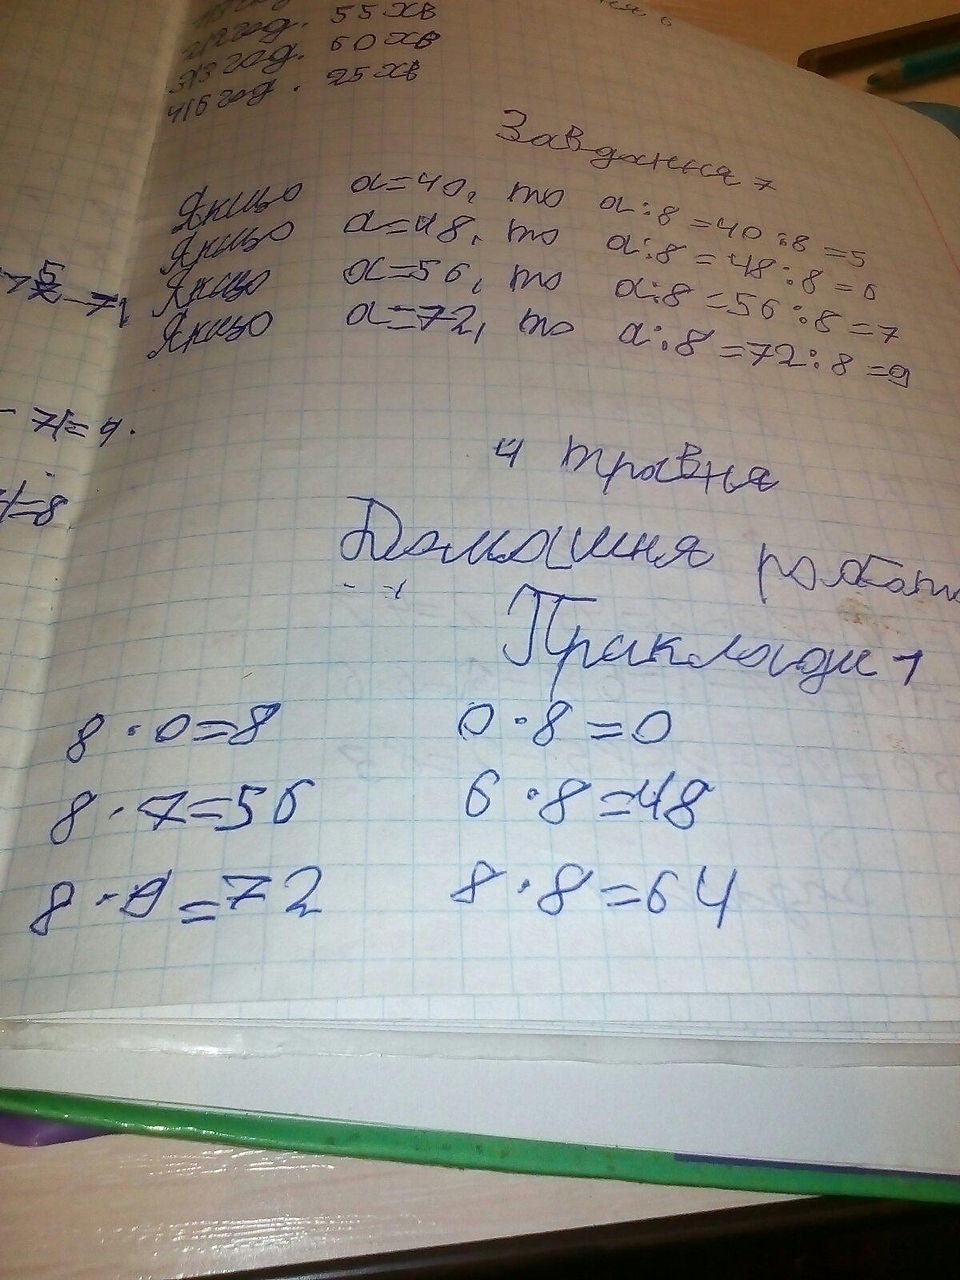 год. 55 хв
3/3 год. 60 хв
4/5 год. 25 хв
Завдання 7
Якщо a=40, то a:8=40:8=5
Якщо a=48, то a:8=48:8=6
Якщо a=56, то a:8=56:8=7
Якщо a=72, то a:8=72:8=9
4 травня
Домашня робота
Приклади 1
8·0=8 0·8=0
8·7=56 6·8=48
8·9=72 8·8=64